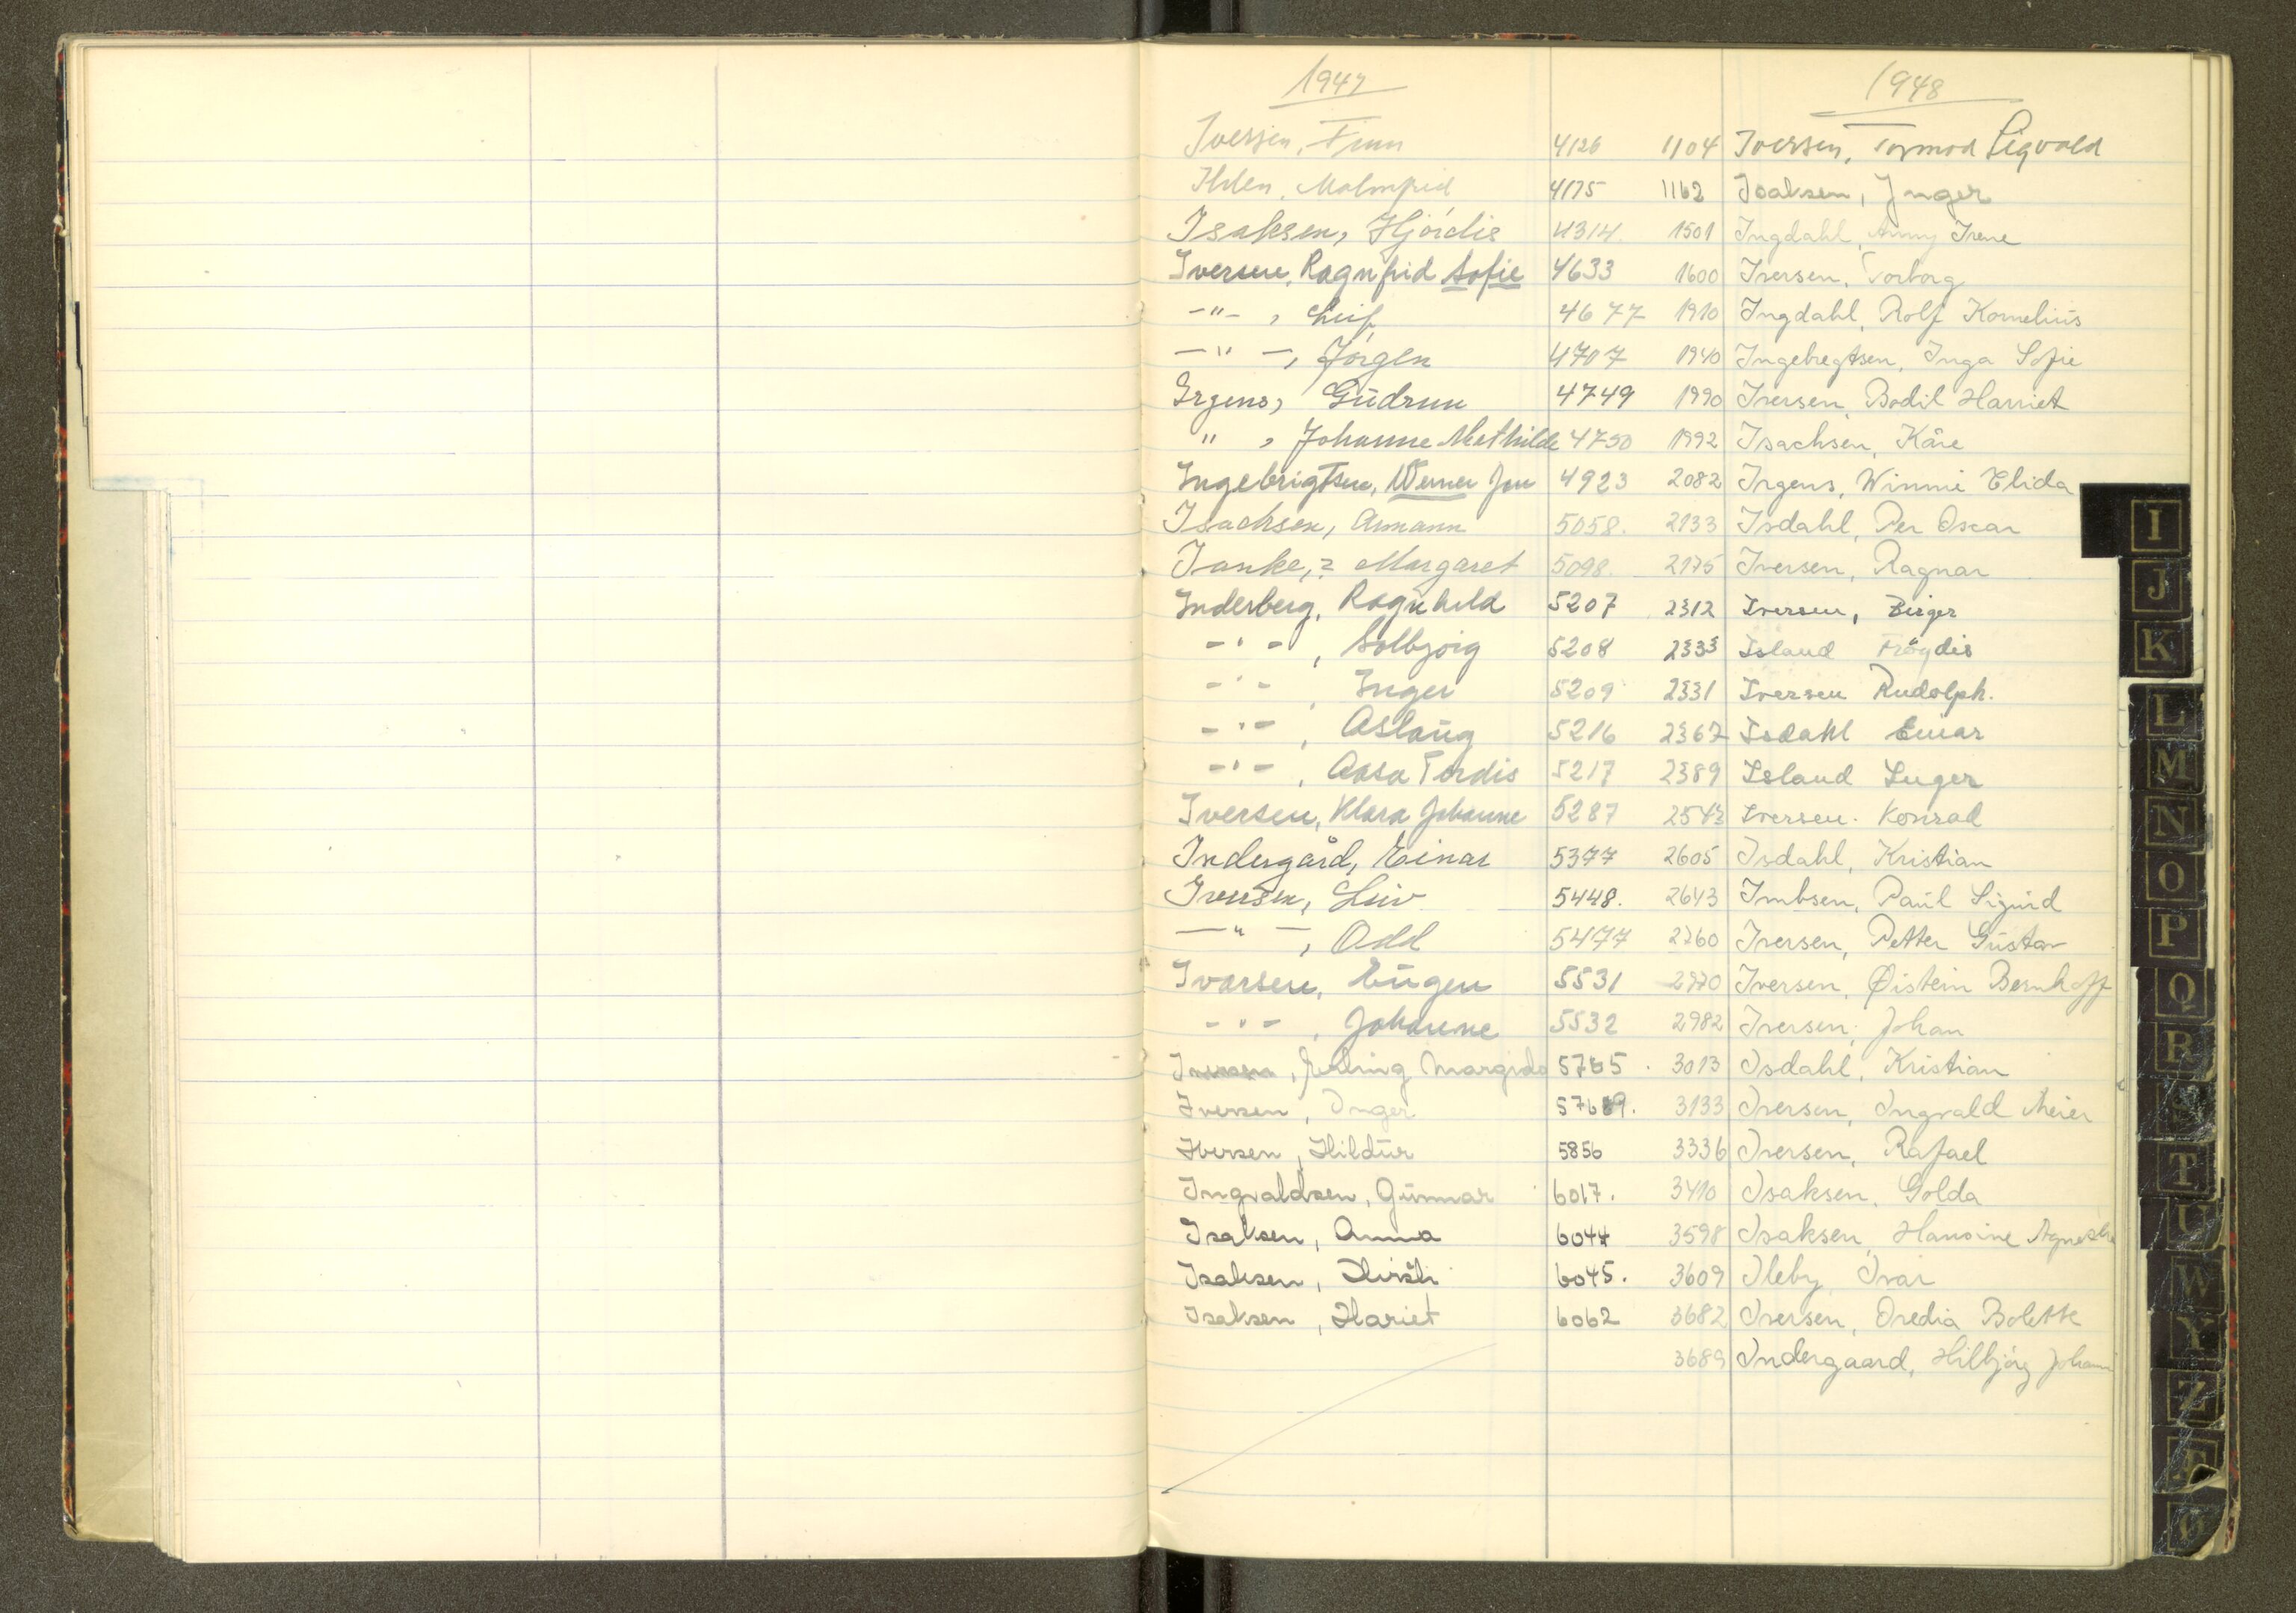 1947 1948
Iversen, Finn 4126 1104 Iversen, Tormod Sigvald
Ihlen, Malmfrid 4175 1162 Isaksen, Inger
Isaksen, Hjördis 4314. 1501 Ingdahl, Anny Irene
Iversen, Ragnfrid Sofie 4633 1600 Iversen, Torborg
-"- , Leif 4677 1910 Ingdahl, Rolf Kornelius
-"-, Jörgen 4707 1940 Ingebregtsen, Inga Sofie
Irgens, Gudrun 4749 1990 Iversen, Bodil Harriet
" , Johanne Mathilde 4750 1992 Isachsen, Kåre
Ingebrigtsen, Werner Jon 4923 2082 Irgens, Winnie Elida
Isachsen, Armann 5058. 2133 Isdahl, Per Oscar
Ianke,? Margaret 5098. 2175 Iversen, Ragnar
Inderberg, Ragnhild 5207 2312 Iversen, Birger
-"- , Solbjörg 5208 2333 Island Frögdis
-"- , Inger 5209 2331 Iversen Rudolph.
-"- , Aslaug 5216 2367 Isdahl Einar
-"- , Aasa Tordis 5217 2389 Island Inger
Iversen, Klara Johanne 5287 2543 Iversen. Konrad
Indergård, Einar 5377 2605 Isdahl, Kristian
Iversen, Liv 5448. 2643 Imbsen, Paul Sigurd
-"-, Odd 5477 2760 Iversen, Petter Gustav
Ivarsen, Eugen 5531 2970 Iversen, Øistein Bernhoff
-"- , Johanne 5532 2982 Iversen, Johan
Iversen, Erling Margido 5765. 3013 Isdahl, Kristian
Iversen, Inger 5769. 3133 Iversen, Ingvald Meier
Iversen, Hildur 5856 3336 Iversen, Rafael
Ingvaldsen, Gunnar 6017. 3410 Isaksen, Golda
Isaksen, Anna 6044 3598 Isaksen, Hansine
Isaksen, Kirsti 6045. 3609 Ileby, Ivar
Isaksen, Hariet 6062 3682 Iversen, Oredia Bolette
3689 Indergaard, Hilbjörg Johanne
I
J
K
L
M
N
O
P
Q
R
S
T
U
W
Y
Z
Æ
Ø